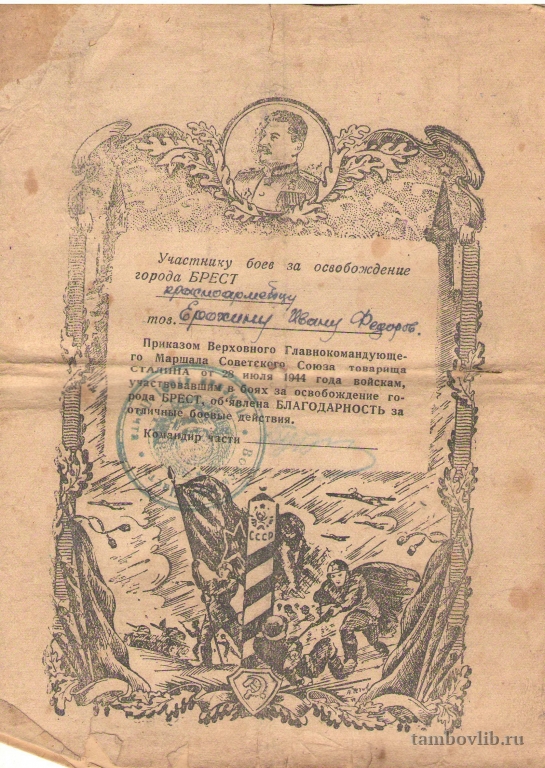 Участнику боев за освобождение
города БРЕСТ
красноармейцу
тов. Ерохину Ивану Федоров.
Приказом Верховного Главнокомандующе-
го Маршала Советского Союза товарища
СТАЛИНА от 28 июля 1944 года войскам,
участвовавшим в боях за освобождение го-
рода БРЕСТ, об'явлена БЛАГОДАРНОСТЬ за
отличные боевые действия.
Командир части
СССР
tambovlib.ru